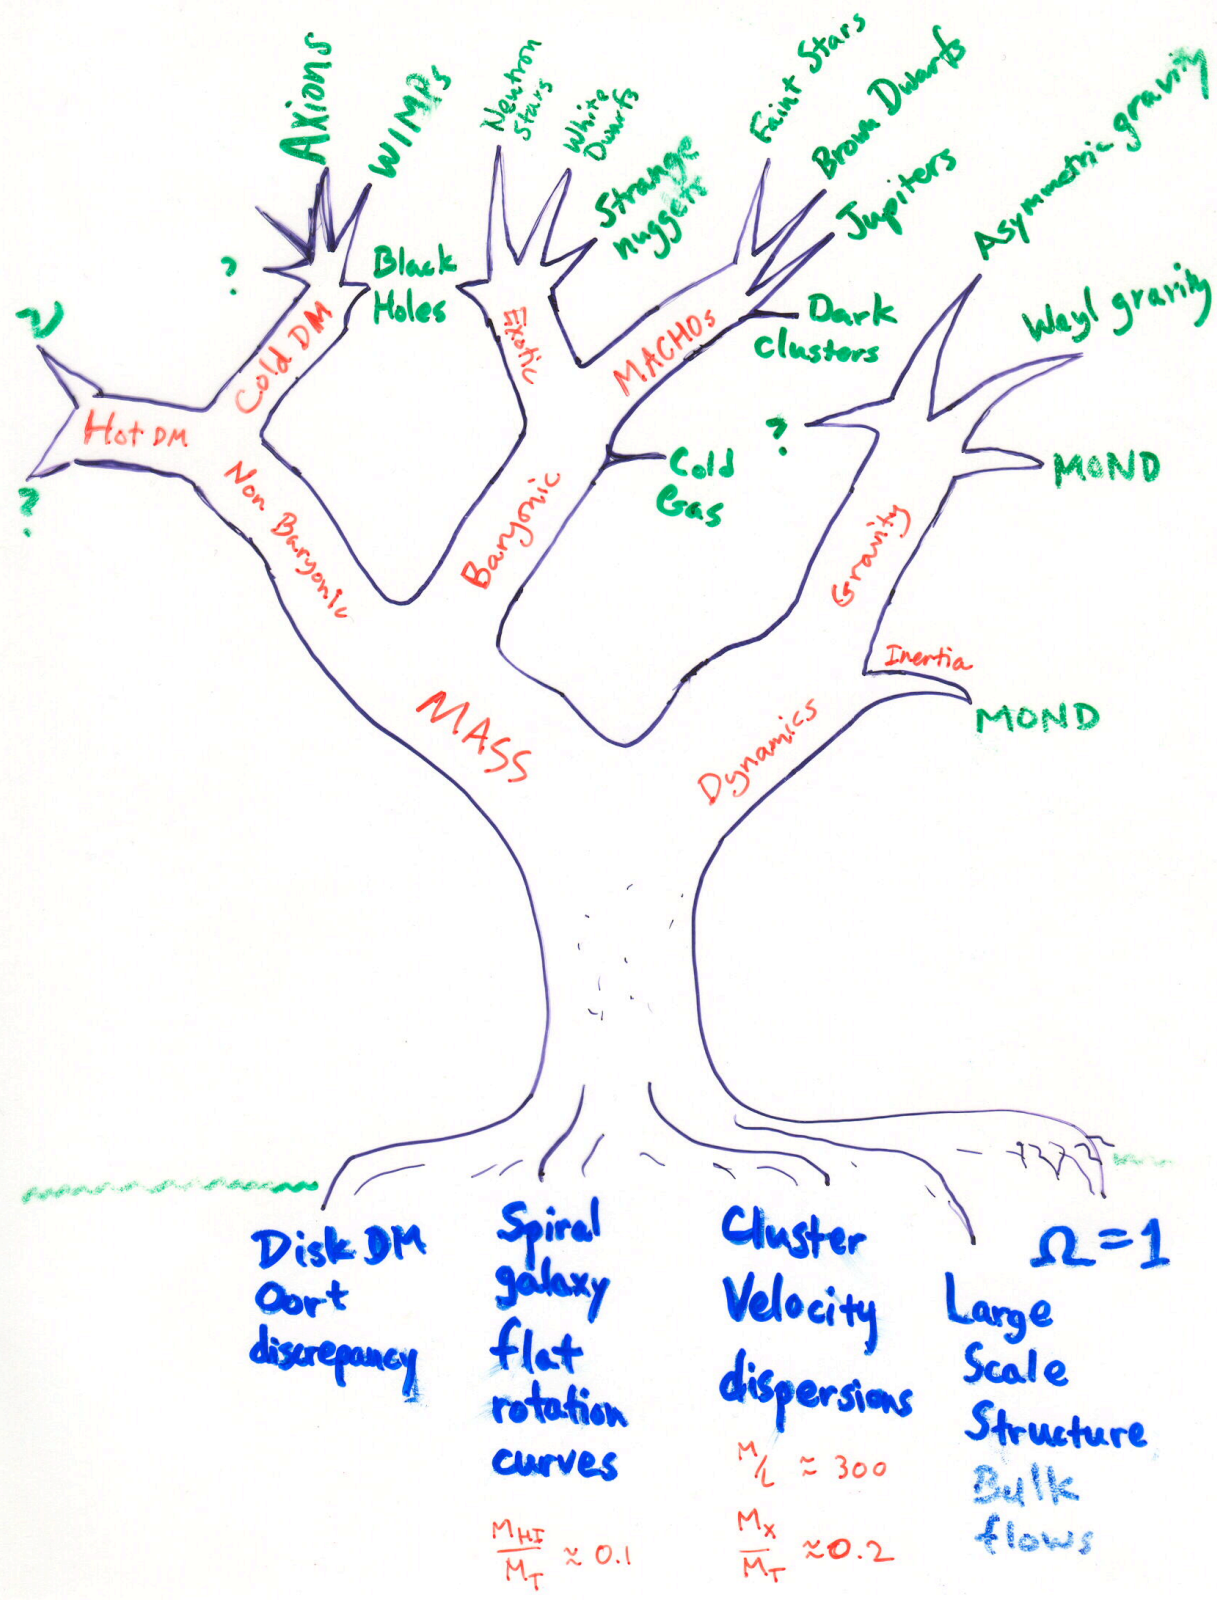 Axions
WIMPs
Neutron
Stars
White
Dwarfs
Strange
nuggets
Faint Stars
Brown Dwarfs
Jupiters
Asymmetric gravity
Weyl gravity
?
Black
Holes
Dark
clusters
ν
Cold DM
Exotic
MACHOs
Hot DM
?
?
Cold
Gas
MOND
Non Baryonic
Baryonic
Gravity
Inertia
MOND
MASS
Dynamics
Disk DM
Oort
discrepancy
Spiral
galaxy
flat
rotation
curves
M_HI/M_T ≈ 0.1
Cluster
Velocity
dispersions
M/L ≈ 300
M_X/M_T ≈ 0.2
Ω = 1
Large
Scale
Structure
Bulk
flows